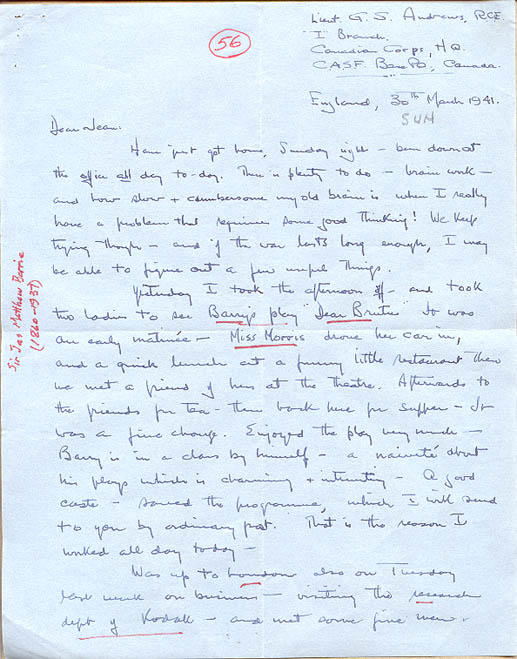 56
Lieut. G. S. Andrews, RCE.
I Branch
Canadian Corps, HQ.
CASF. Base PO, Canada.
England, 30th March 1941.
SUN
Dear Jean:
Have just got home, Sunday night – been down at
the office all day to-day. There is plenty to do – brain work –
and how slow + cumbersome my old brain is when I really
have a problem that requires some good thinking! We keep
trying though – and if the war lasts long enough, I may
be able to figure out a few useful things.
Yesterday I took the afternoon off – and took
two ladies to see Barry's play "Dear Brutus" It was
an early matinée – Miss Morris drove her car in,
and a quick lunch at a funny little restaurant then
we met a friend of hers at the theatre. Afterwards to
the friends for tea – then back here for supper – It
was a fine change. Enjoyed the play very much –
Barry is in a class by himself – a naiveté about
his plays which is charming + interesting – A good
caste – saved the programme, which I will send
to you by ordinary post. That is the reason I
worked all day today –
Was up to London also on Tuesday
last week on business – visiting the research
dept of Kodak – and met some fine men.
Sir Jas Matthew Barrie
(1860-1937)